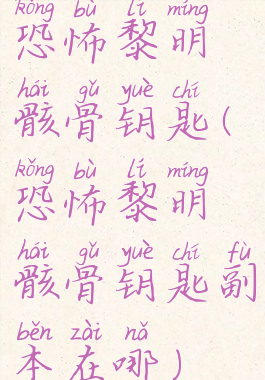 kǒng bù lí míng
恐怖黎明
hái gǔ yuè chí
骸骨钥匙(
kǒng bù lí míng
恐怖黎明
hái gǔ yuè chí fù
骸骨钥匙副
běn zài nǎ
本在哪)